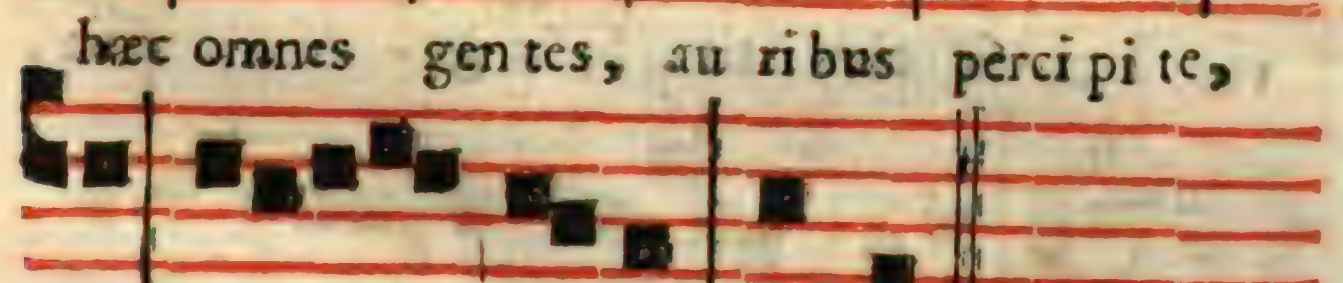 hæc omnes gen tes, au ri bus pèrci pi te,